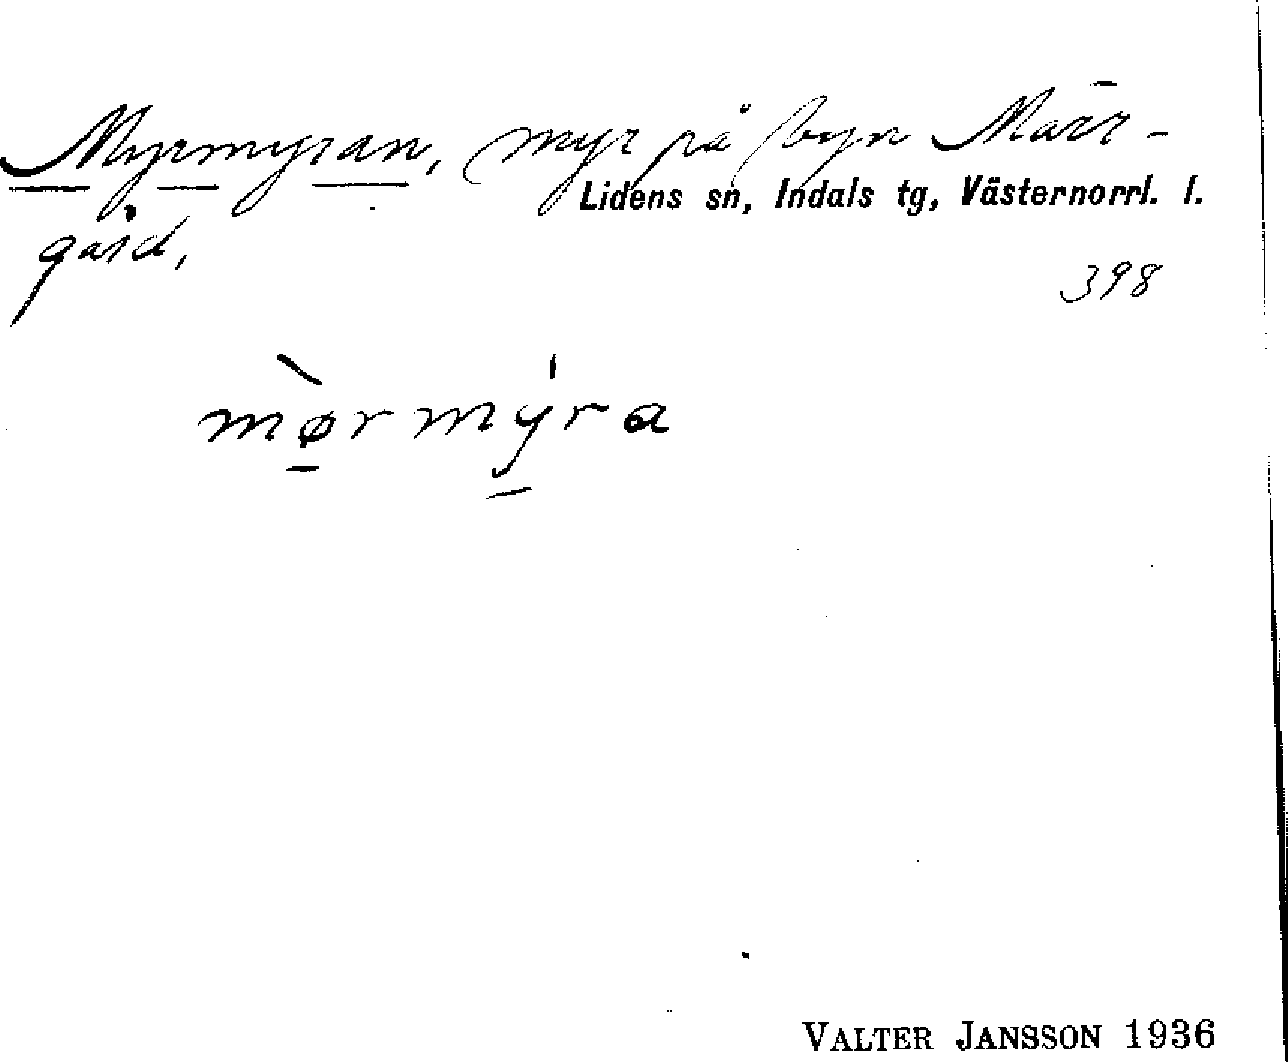 Myrmyran, myr på byn Märr-
Lidens sn, Indals tg, Västernorrl. l.
gård,
398
mø̱̀rmý̱ra
VALTER JANSSON 1936